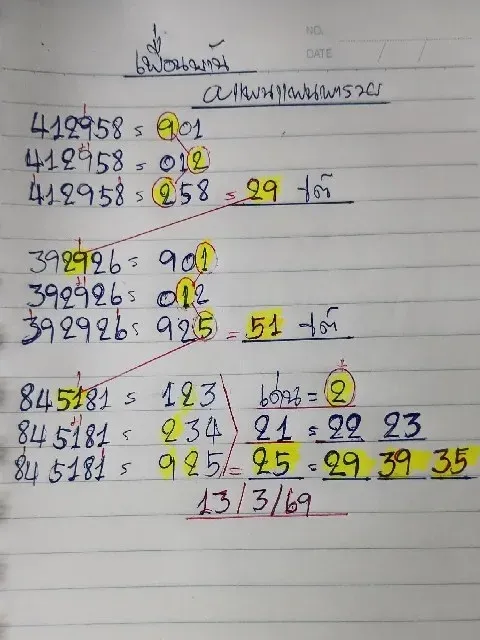 NO.
DATE / /
เพื่อนพาน
412958 = 901
412958 = 012
412958 = 258 = 29 โต๊
392926 = 901
392926 = 012
392926 = 925 = 51 โต๊
845181 = 123 เด่น = 2
845181 = 234 21 = 22 23
845181 = 925 = 25 = 29 39 35
13/3/69